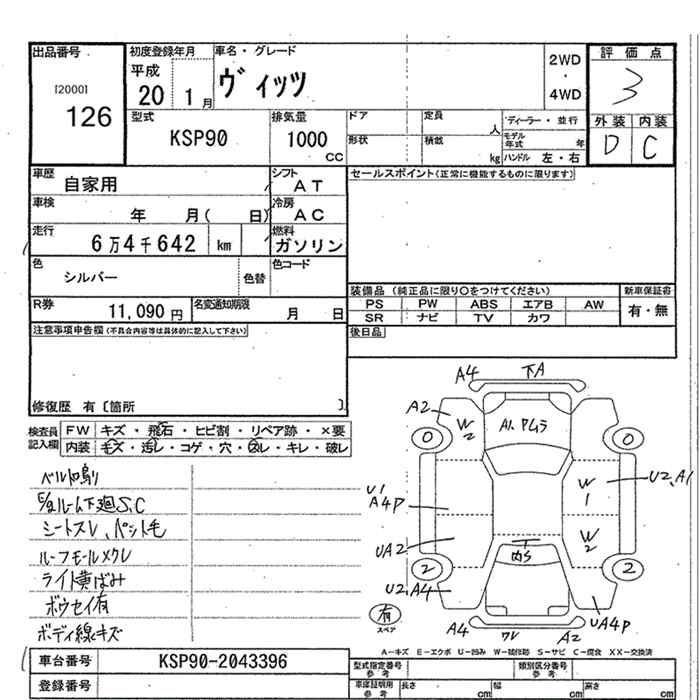 出品番号
[2000]
126
初度登録年月
平成
20 1月
車名・グレード
ヴィッツ
2WD
・
4WD
評価点
3
外装 内装
D C
型式
KSP90
排気量
1000
CC
ドア
形状
定員
人
積載
kg
ディーラー・並行
モデル年式
年
ハンドル 左・右
車歴
自家用
シフト
AT
車検
年 月( 日)
冷房
AC
走行
6万4千642 km
燃料
ガソリン
色
シルバー
色替
色コード
R券
11,090円
名変通知期限
月 日
セールスポイント(正常に機能するものに限ります)
装備品 (純正品に限り○をつけてください)
PS PW ABS エアB AW
SR ナビ TV カワ
新車保証書
有・無
後日品
注意事項申告欄(不具合内容等は具体的に記入して下さい)
修復歴 有〔箇所 〕
検査員記入欄
FW キズ・飛石・ヒビ割・リペア跡・×要
内装 キズ・汚レ・コゲ・穴・スレ・キレ・破レ
ベルト鳴り
シートスレ、ペット毛
ルーフモールメクレ
ライト黄ばみ
ボウセイ有
ボディ線キズ
A4 下A
A2
W2
0 0
U1
A4P
W1
U2 A1
UA2
W2
内S
2 2
U2 A4
UA4P
有
スペア
A4 ワレ A2
A-キズ E-エクボ U-凹み W-補修跡 S-サビ C-腐食 XX-交換済
車台番号
KSP90-2043396
登録番号
型式指定番号
参考
類別区分番号
参考
車庫証明用
参考
長さ cm
幅 cm
高さ cm